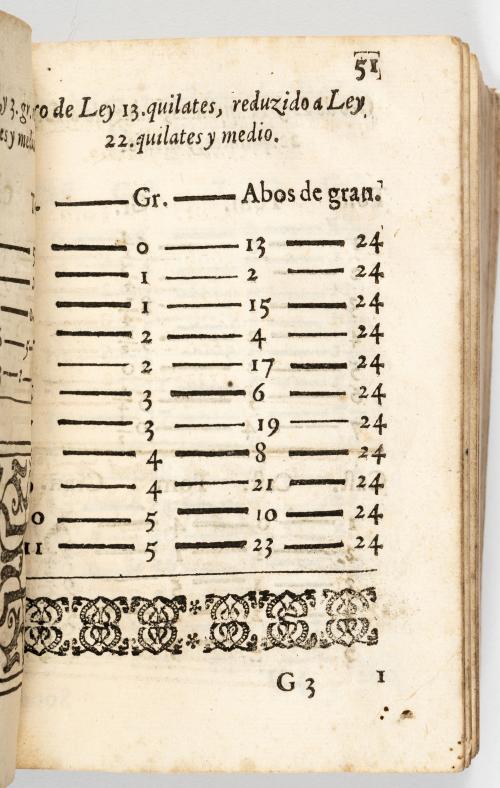 51
ro de Ley 13.quilates, reduzido a Ley
22.quilates y medio.
Gr. Abos de gran.
0 13 24
1 2 24
1 15 24
2 4 24
2 17 24
3 6 24
3 19 24
4 8 24
4 21 24
5 10 24
11 5 23 24
G 3 1